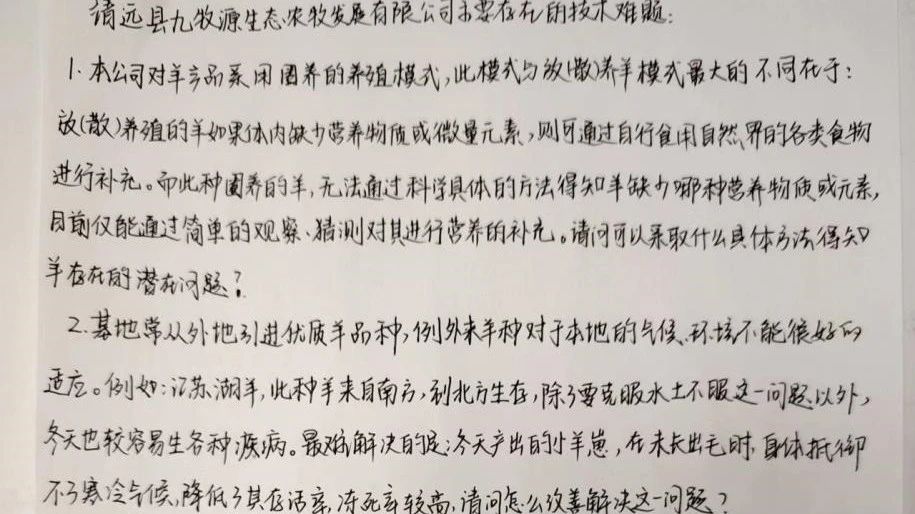 靖远县九牧源生态农牧发展有限公司主要存在的技术难题:
1.本公司对羊产品采用圈养的养殖模式,此模式与放(散)养羊模式最大的不同在于:
放(散)养殖的羊如果体内缺少营养物质或微量元素,则可通过自行食用自然界的各类食物
进行补充。而此种圈养的羊,无法通过科学具体的方法得知羊缺少哪种营养物质或元素,
目前仅能通过简单的观察、猜测对其进行营养的补充。请问可以采取什么具体方法得知
羊存在的潜在问题?
2.基地常从外地引进优质羊品种,但外来羊种对于本地的气候、环境不能很好的
适应。例如:江苏湖羊,此种羊来自南方,到北方生存,除了要克服水土不服这一问题以外,
冬天也较容易生各种疾病。最难解决的是:冬天产出的小羊崽,在未长出毛时,身体抵御
不了寒冷气候,降低了其存活率,冻死率较高,请问怎么改善解决这一问题?